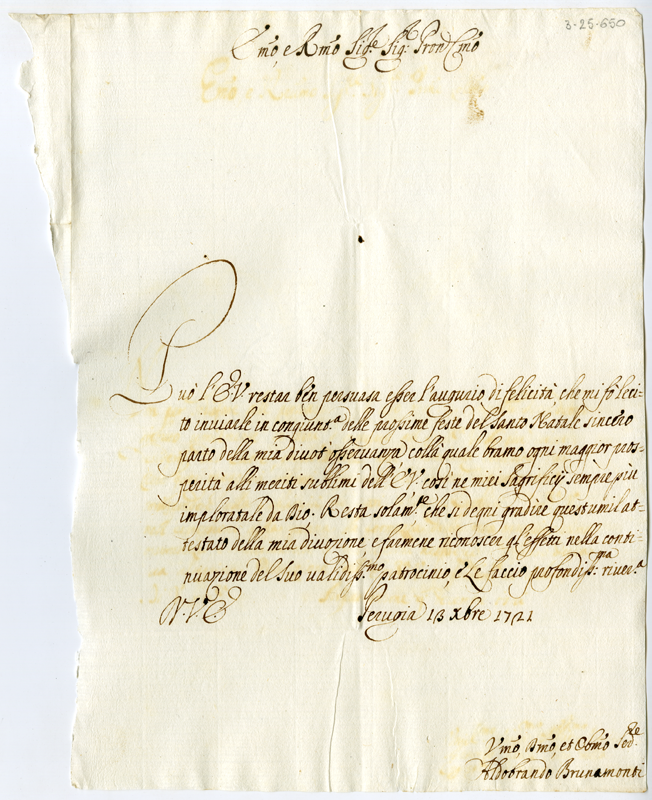 3-25-650
Emo, e Rmo Sig.re Sig.r Pron Cmo
Può l'E.V. restar bèn persuasa esser l'augurio di felicità, che mi fò leci-
to inviarle in congiunt.a delle prossime feste del Santo Natale sincero
parto della mia divot' osservanza colla quale bramo ogni maggior pros-
perità alli meriti sublimi dell'E.V. così ne miei Sagrificij sempre più
imploratale da Dio. Resta solam.te che si degni gradire quest'umil at-
testato della mia divozione e farmene riconoscer gl'effetti nella conti-
nuazione del suo validiss.mo patrocinio, e Le faccio profondiss.ma river.a
D.V.E. Perugia 13 Xbre 1721
Vmo, Dmo, et Obmo Sed.re
Aldobrando Brunamonti